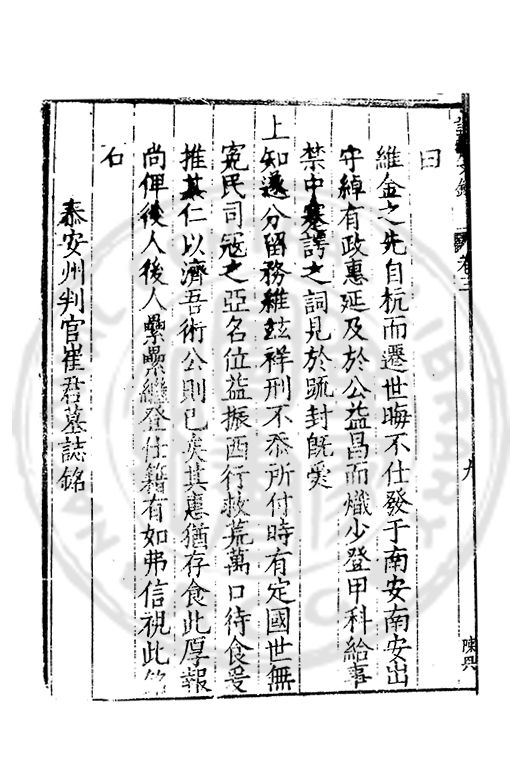 曰
維金之先自杭而遷世晦不仕發于南安南安出
守綽有政惠延及於公益昌而熾少登甲科給事
禁中蹇諤之詞見於疏封旣受
上知遂分留務維玆祥刑不忝所付時有定國世無
寃民司寇之亞名位益振西行救荒萬口待食爰
推其仁以濟吾術公則已矣其惠猶存食此厚報
尚俾後人後人纍纍繼登仕籍有如弗信視此銘
石
泰安州判官崔君墓誌銘
卷二
九
陳兴